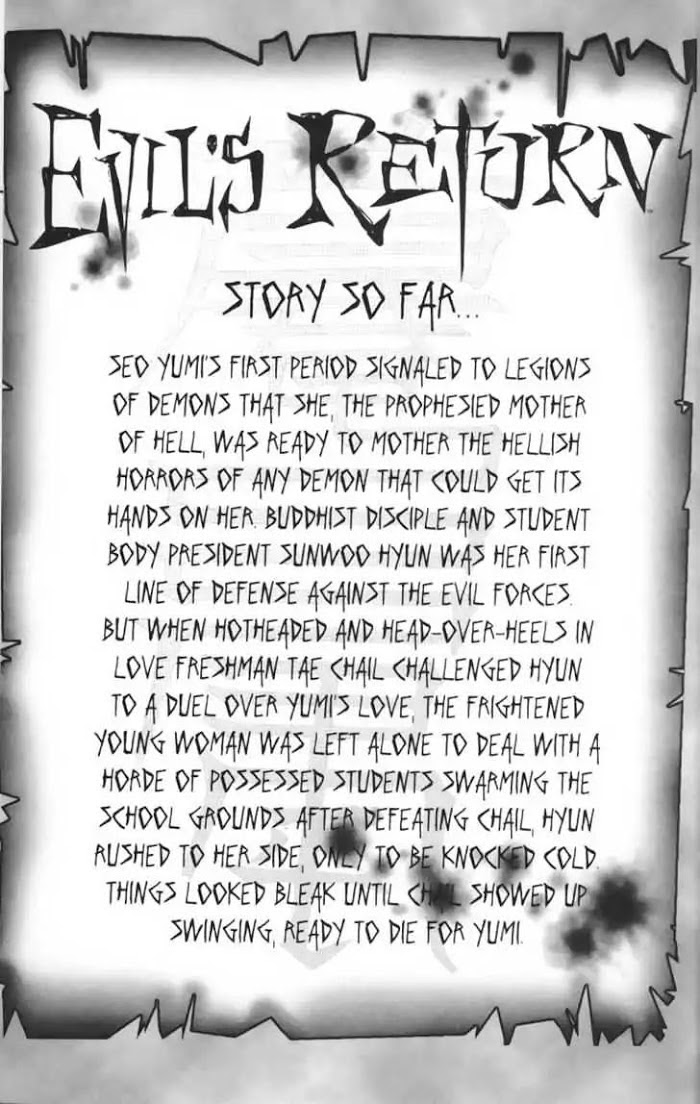 EVIL'S RETURN
STORY SO FAR...
SEO YUMI'S FIRST PERIOD SIGNALED TO LEGIONS
OF DEMONS THAT SHE, THE PROPHESIED MOTHER
OF HELL, WAS READY TO MOTHER THE HELLISH
HORRORS OF ANY DEMON THAT COULD GET ITS
HANDS ON HER. BUDDHIST DISCIPLE AND STUDENT
BODY PRESIDENT SUNWOO HYUN WAS HER FIRST
LINE OF DEFENSE AGAINST THE EVIL FORCES.
BUT WHEN HOTHEADED AND HEAD-OVER-HEELS IN
LOVE FRESHMAN TAE CHAIL CHALLENGED HYUN
TO A DUEL OVER YUMI'S LOVE, THE FRIGHTENED
YOUNG WOMAN WAS LEFT ALONE TO DEAL WITH A
HORDE OF POSSESSED STUDENTS SWARMING THE
SCHOOL GROUNDS. AFTER DEFEATING CHAIL, HYUN
RUSHED TO HER SIDE, ONLY TO BE KNOCKED COLD.
THINGS LOOKED BLEAK UNTIL CHAIL SHOWED UP
SWINGING, READY TO DIE FOR YUMI.